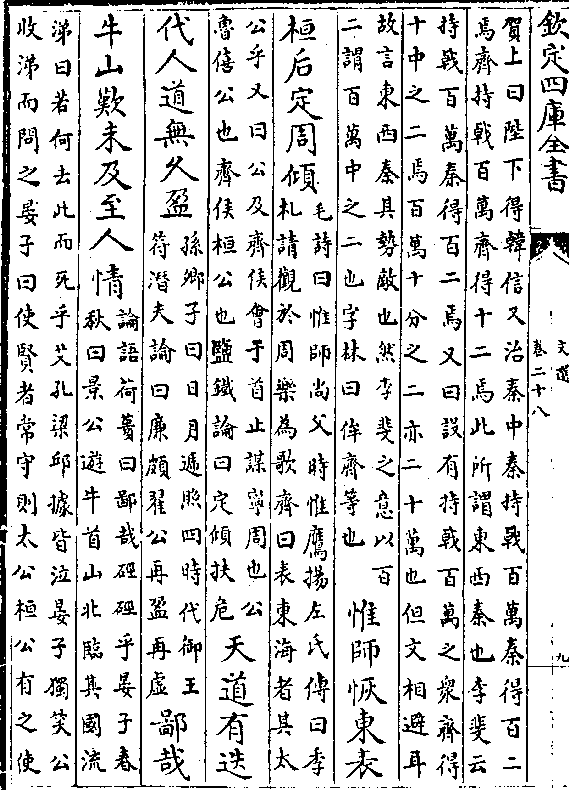 欽定四庫全書
文選
卷二十八
九
賀上曰陛下得韓信又治秦中秦持戟百萬秦得百二
焉齊持戟百萬齊得十二焉此所謂東西秦也李斐云
持戟百萬秦得百二焉又曰設有持戟百萬之衆齊得
十中之二焉百萬十分之二亦二十萬也但文相避耳
故言東西秦其勢敵也然李斐之意以百
二謂百萬中之二也字林曰侔齊等也
惟師恢東表
桓后定周傾
毛詩曰惟師尚父時惟鷹揚左氏傳曰季
札請觀於周樂為歌齊曰表東海者其太
公乎又曰公及齊侯會于首止謀寧周也公
魯僖公也齊侯桓公也鹽鐵論曰定傾扶危
天道有迭
代人道無久盈
孫卿子曰日月遞照四時代御王
符潛夫論曰廉頗翟公再盈再虛
鄙哉
牛山歎未及至人情
論語荷蕢曰鄙哉硜硜乎晏子春
秋曰景公遊牛首山北臨其國流
涕曰若何去此而死乎艾孔梁邱據皆泣晏子獨笑公
收涕而問之晏子曰使賢者常守則太公桓公有之使